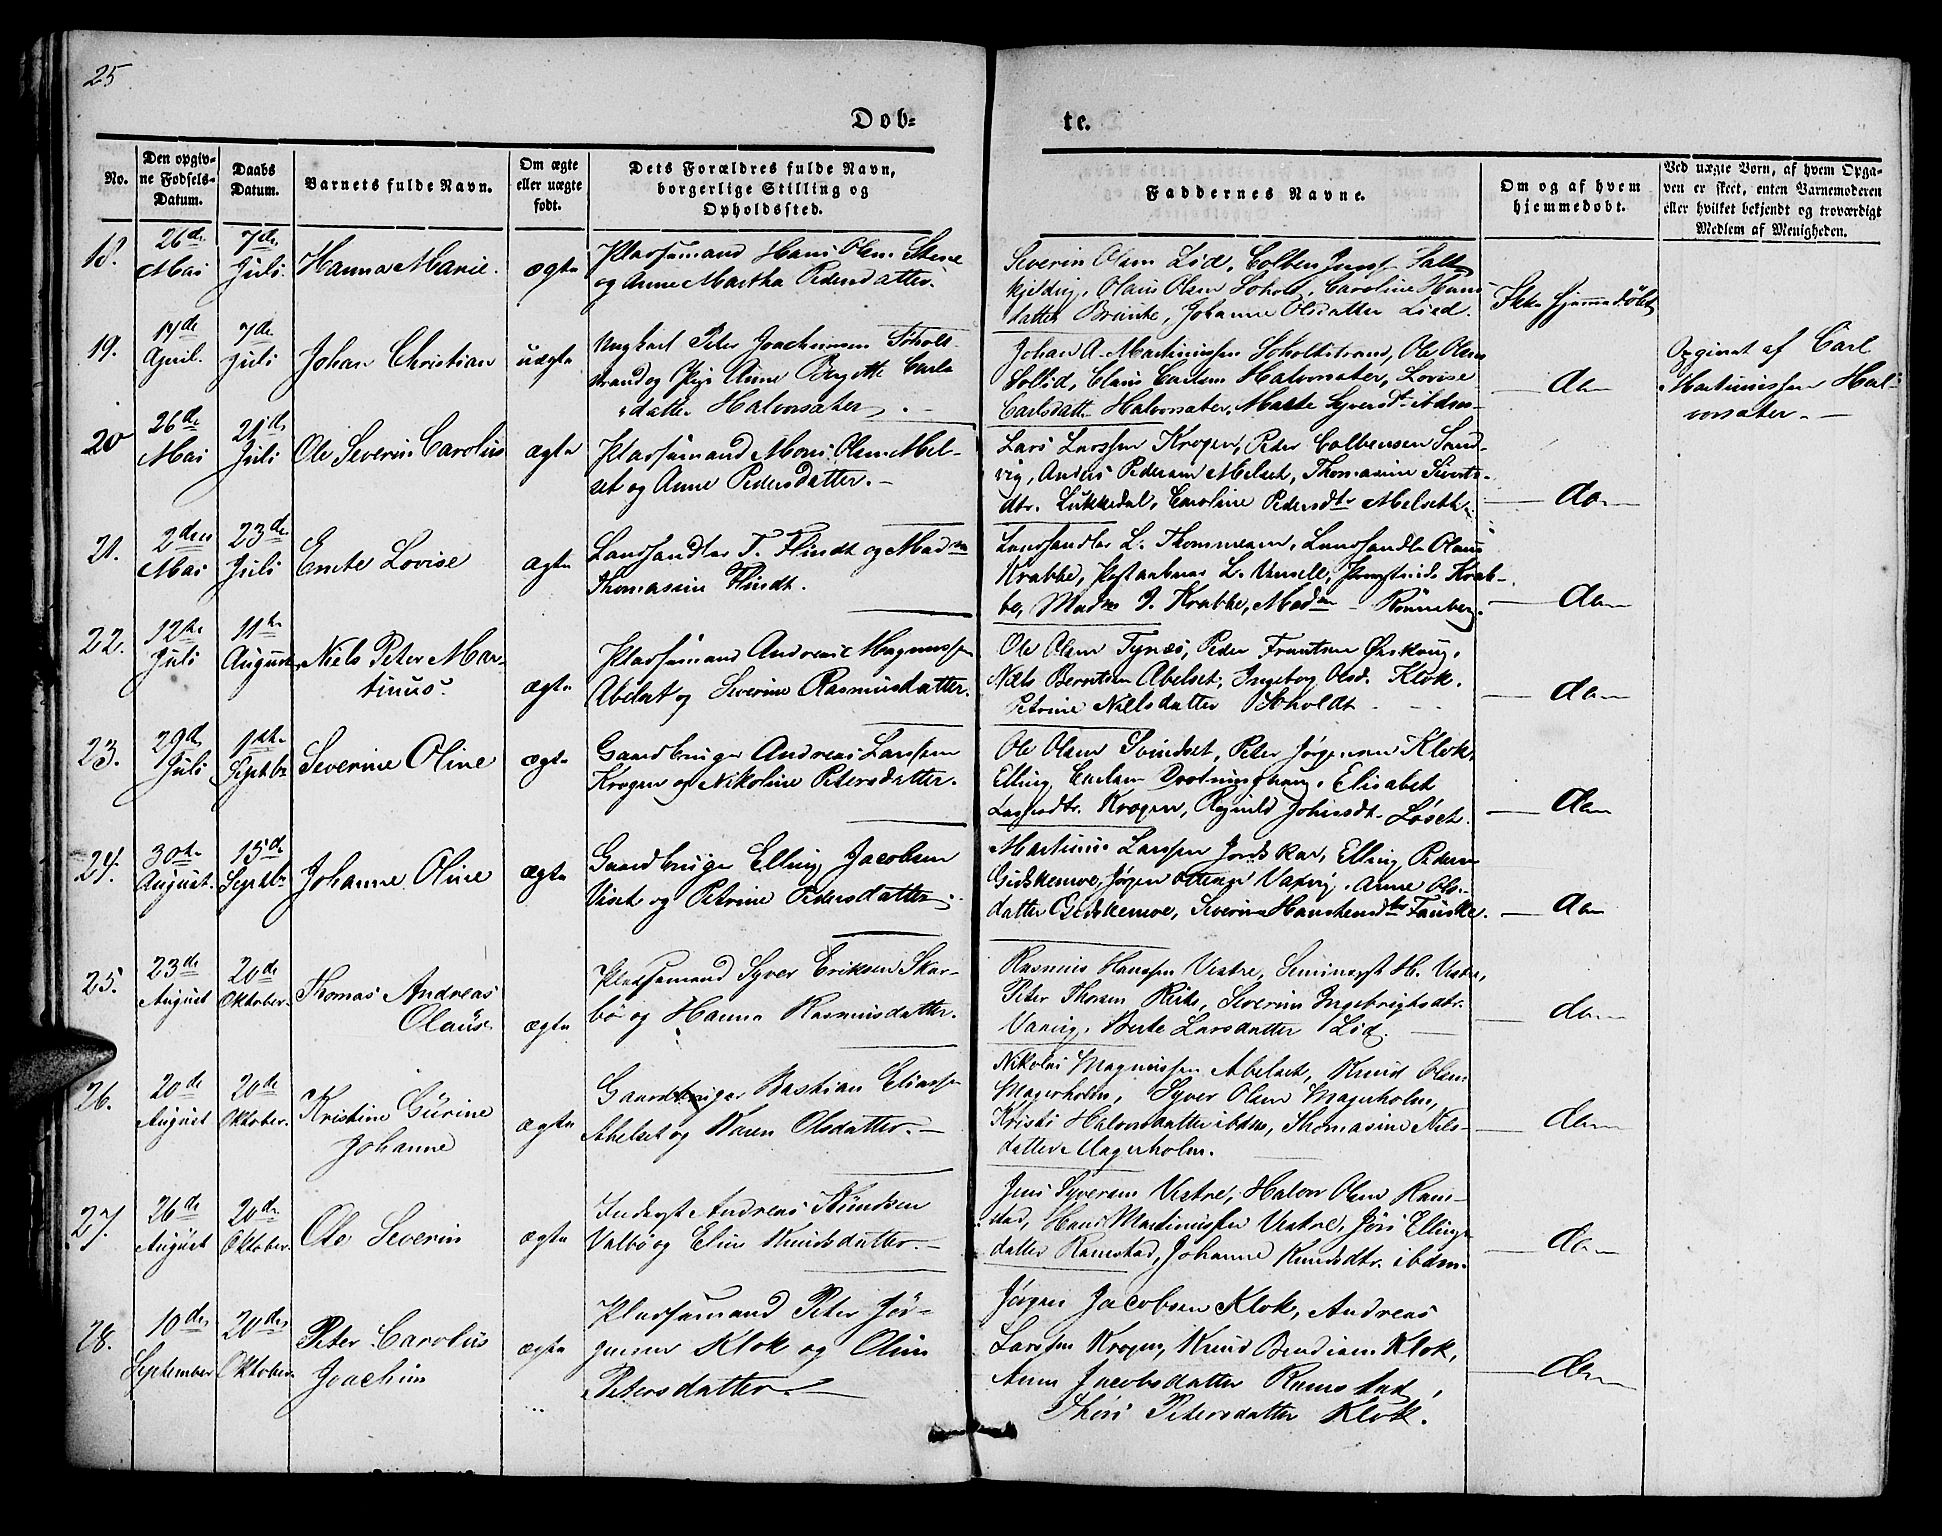 25
Dob=
te.
No.
Den opgiv-
ne Fodsels-
Datum.
Daabs
Datum.
Barnets fulde Navn.
Om ægte
eller uægte
født.
Dets Forældres fulde Navn,
borgerlige Stilling og
Opholdssted.
Faddernes Navne.
Om og af hvem
hjemmedøbt.
Ved uægte Born, af hvem Opga-
ven er skeet, enten Barnemoderen
eller hvilket bekjendt og troværdigt
Medlem af Menigheden.
18.
26de
Mai
7de
Juli
Hanna Marie.
ægte
Pladsemand Hans Olsen
og Anne Martha Pedersdatter.
Severin Olsen Lid, Colben
Olaus Olsen Soholt, Caroline Hans
datter Brunke, Johanne Olsdatter Liid.
Ikke hjemmedøbt
19.
14de
April.
7de
Juli
Johan Christian
uægte
Ungkarl Peter Joachimsen Soholt-
strand og Pige Anne Bergitte Carls
datter Halvorsæter.
Johan A. Martinussen Soholtstrand, Ole Olsen
Solliid, Claus Carlsen Halvorsæter, Lovise
Carlsdatter Halvorsæter, Marte Syversdtr ibdm
do
Opgivet af Carl
Martinussen Hal-
vorsæter.
20
26de
Mai
21de
Juli
Ole Severin Carolius
ægte
Pladsemand Mons Olsen Mel-
set og Anne Pedersdatter.
Lars Larssen Krogen, Peder Colbensen Sand-
vig, Anders Pedersen Melset, Thomasine Siverts-
dtr. Lukkedal, Caroline Pedersdtr Melseth.
do
21.
2den
Mai
23de
Juli
Emte Lovise
ægte
Landhandler T. Flindt og Madm
Thomasine Flindt.
Landhandler L. Thommesen, Landhandler Olaus
Krabbe, Postaabner L. Krab-
be, Madm J. Krabbe, Madm Rönneberg.
do
22.
12te
Juli
11te
August
Niels Peter Mar-
tinus.
ægte
Pladsemand Andreas Magnussen
Abelset og Severine Rasmusdatter.
Ole Olsen Tynæs, Peder Frantsen Ørskoug,
Niels Berntsen Abelset, Ingeborg Olsd. Klok.
Petrine Nielsdatter Soholdt
do
23.
29de
Juli
1ste
Septbr
Severine Oline
ægte
Gaardbruger Andreas Larssen
Krogen og Nikoline Petersdatter.
Ole Olsen Svindset, Peter Jørgensen Klok,
Elling Carlsen Drotninghaug, Elisabet
Larsdtr. Krogen, Ragnild Johnsdt. Løset.
do
24.
30te
August.
15de
Septbr
Johanne Oline
ægte
Gaardbruger Elling Jacobsen
Viset og Petrine Pedersdatter.
Martinus Larssen Jordskar, Elling Pedersen
Gidskemoe, Jørgen Vaxvig, Anne Ols-
datter Gidskemoe, Severine Hanschensdtr Fauske.
do
25.
23de
August
20de
Oktober.
Thomas Andreas
Olaüs.
ægte
Pladsemand Syver Eriksen Skar-
bø og Hanna Rasmusdatter.
Rasmus Hanssen Vestre, Seminarist H. Vestre,
Peter Thorsen Severine Ingebrigtsdtr.
Vaxvig, Berte Larsdatter Lid.
do
26.
20de
August
20de
Oktober.
Kristine Gürine
Johanne
ægte
Gaardbruger Bastian Eliassen
Abelset og Karen Olsdatter.
Nikolai Magnussen Abelset, Knud Olsen
Magerholm, Syver Olsen Magerholm,
Kristi Halvorsdatter ibdm, Thomasine Niels-
datter Magerholm.
do
27.
26de
August
20de
Oktober.
Ole Severin
ægte
Inderst Andreas Knudsen
Valbø og Eline Knudsdatter.
Jens Syversen Vestre, Halvor Olsen Ram-
stad, Hans Martinussen Vestre, Jøri Ellings-
datter Ramstad, Johanne Knudsdtr. ibdm.
do
28.
10de
September
20de
Oktober
Peter Carolius
Joachim
ægte
Pladsemand Peter Jør-
gensen Klok og Oline
Petersdatter.
Jørgen Jacobsen Klok, Andreas
Larssen Krogen, Knud Bendixen Klok,
Anne Jacobsdatter Ramstad,
Thori Petersdatter Klok.
do